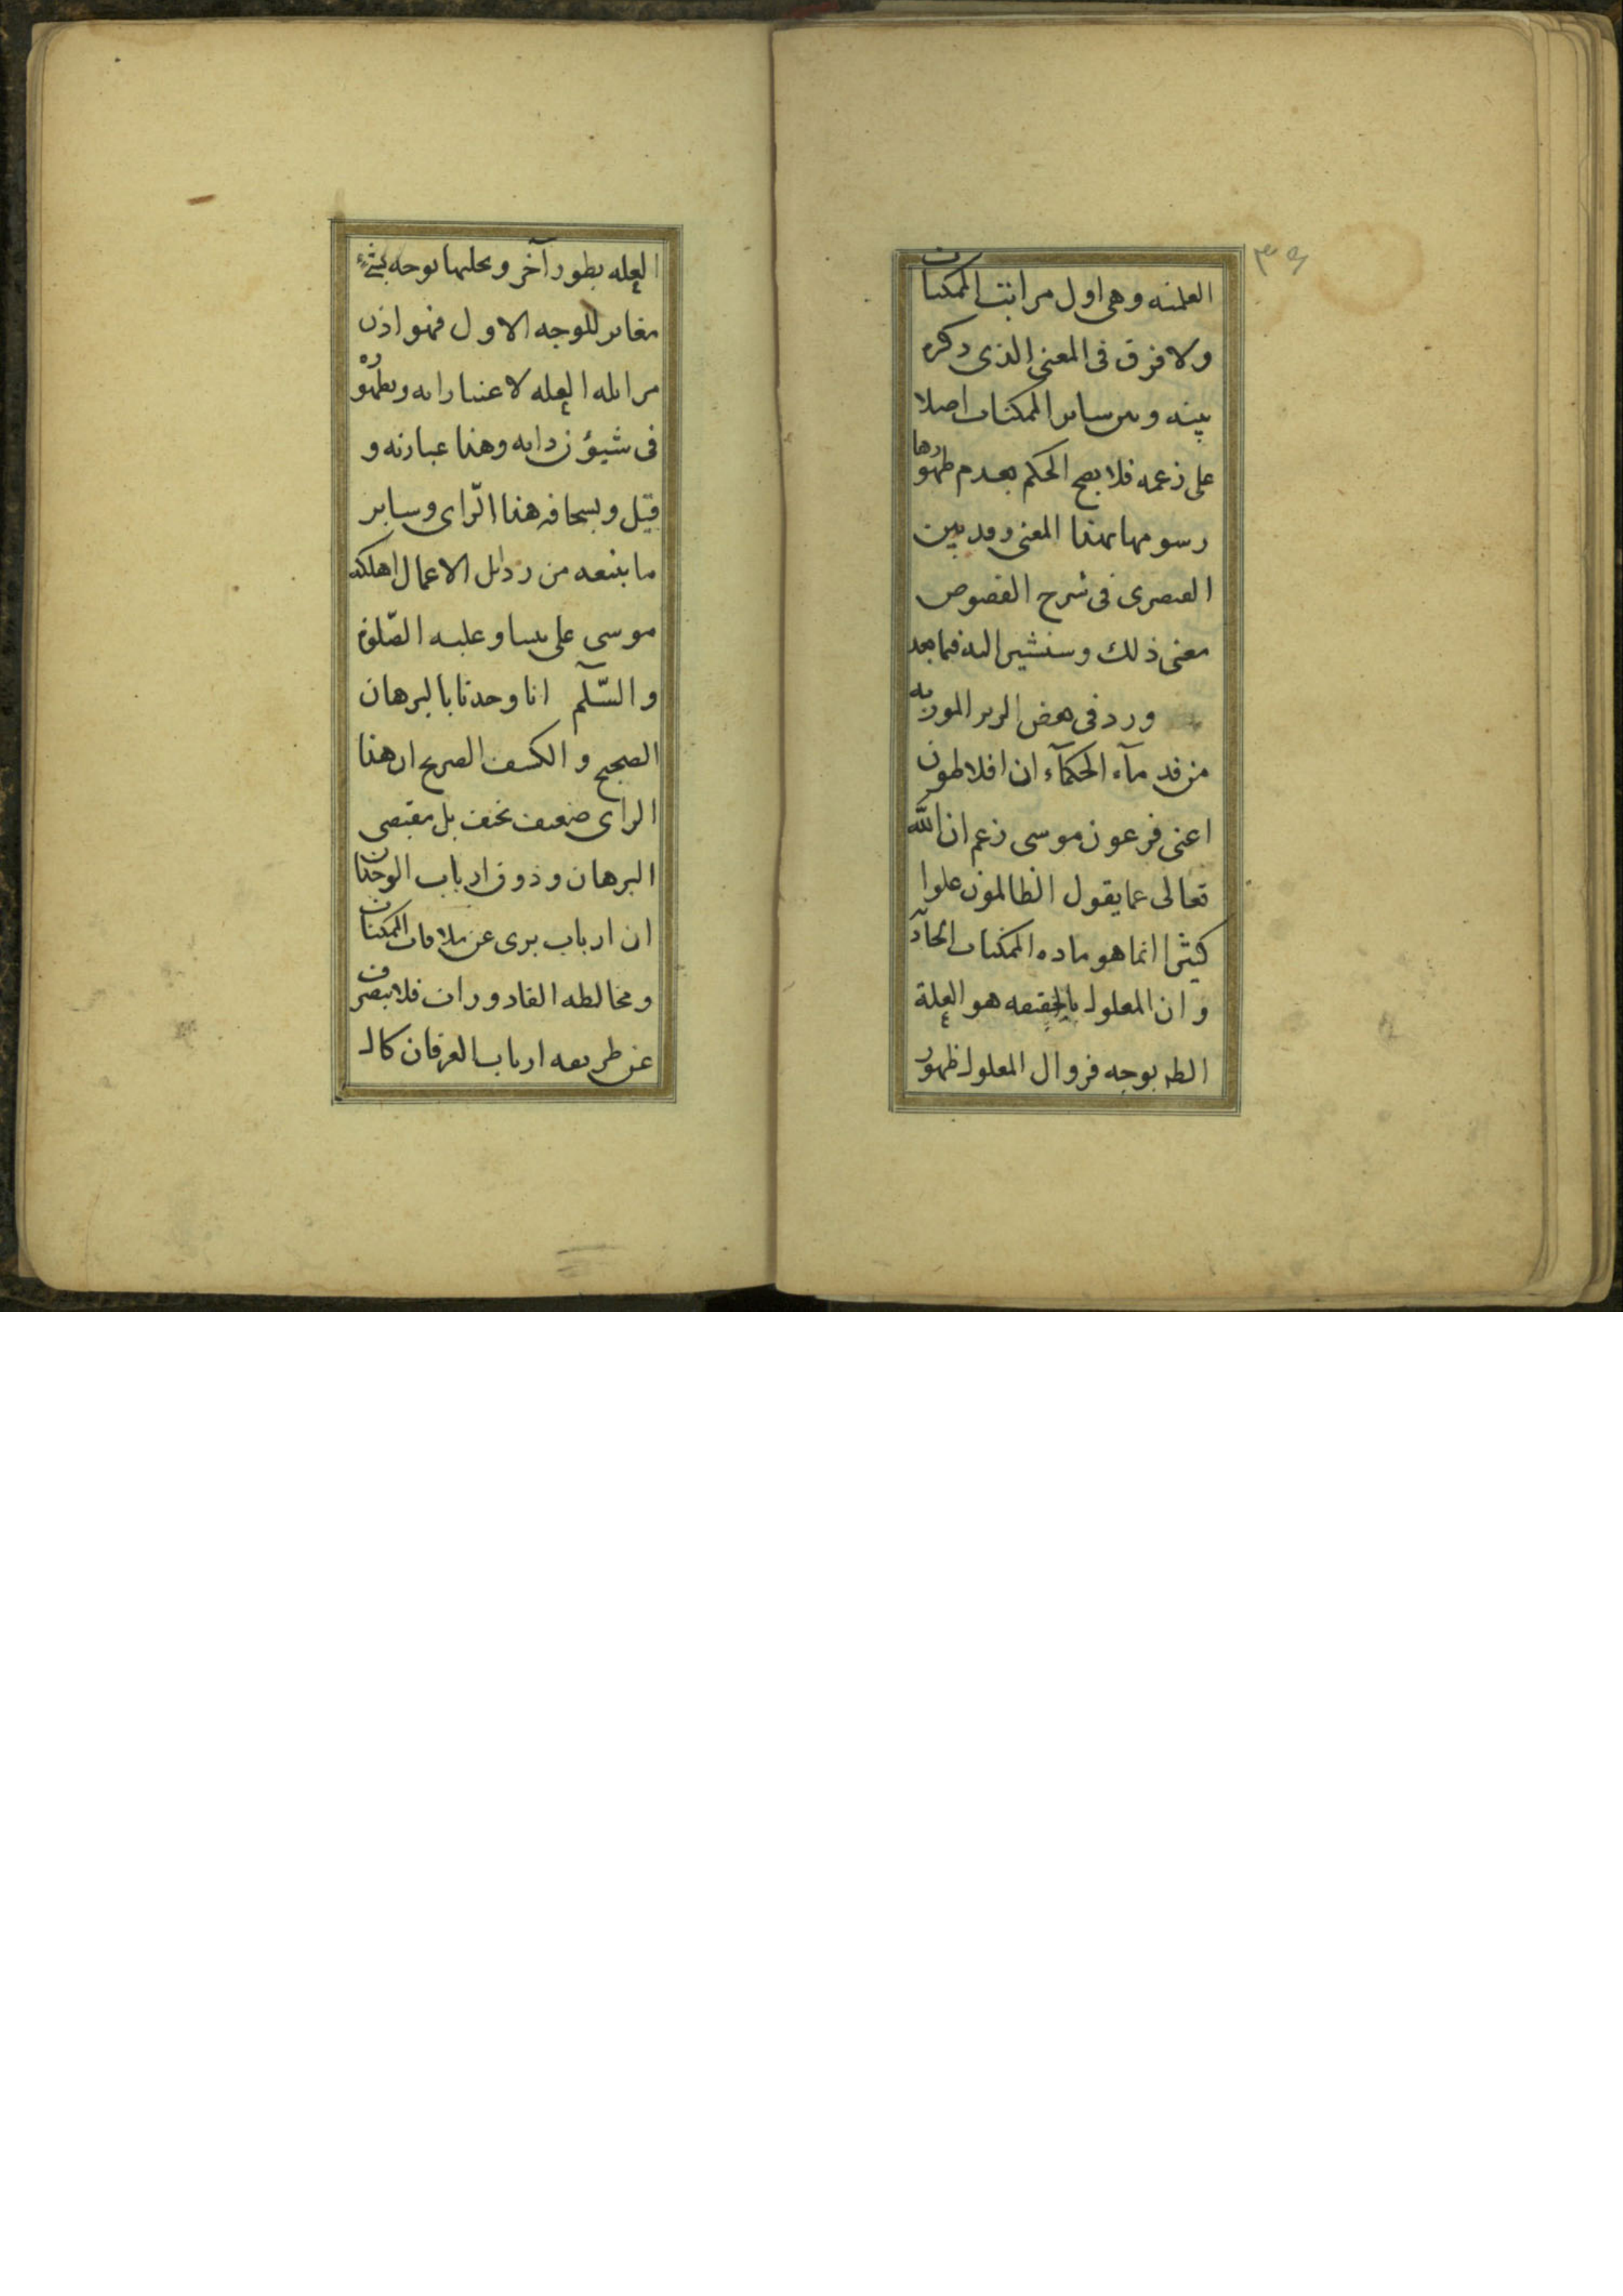 ٣٥
العلمیه وهی اول مراتب الممکنات
ولا فرق فی المعنی الذی ذکره
بینه وبین سایر الممکنات اصلا
علی زعمه فلا یصح الحکم بعدم ظهورها
رسومها بهذا المعنی وقد بین
القیصری فی شرح الفصوص
معنی ذلك وسنشیر الیه فیما بعد
ورد فی بعض الزبر الموربه
من قدمآء الحکمآء ان افلاطون
اعنی فرعون موسی زعم ان الله
تعالی عما یقول الظالمون علوا
کثیرا انما هو ماده الممکنات
وان المعلول بالحقیقه هو العلة
بوجه فزوال المعلول ظهور
العله بطور آخر وتجلیها بوجه
مغایر للوجه الاول فهو اذن
مرایله العله لاعتباراته وتطهوره
فی شیؤن ذاته وهذا عبارته و
قیل وبسخافه هذا الرّای وسایر
ما یتبعه من رذایل الاعمال اهلکه
موسی علی نبینا وعلیه الصّلوة
والسّلم انا وجدنا بالبرهان
الصحیح والکشف الصریح ان هذا
الرای ضعیف نحیف بل مقتضی
البرهان وذوق ارباب الوجدان
ان ارباب بری عن ملاقات الممکنات
ومخالطه القاذورات فلا ینصرف
عن طریقه ارباب العرفان کال